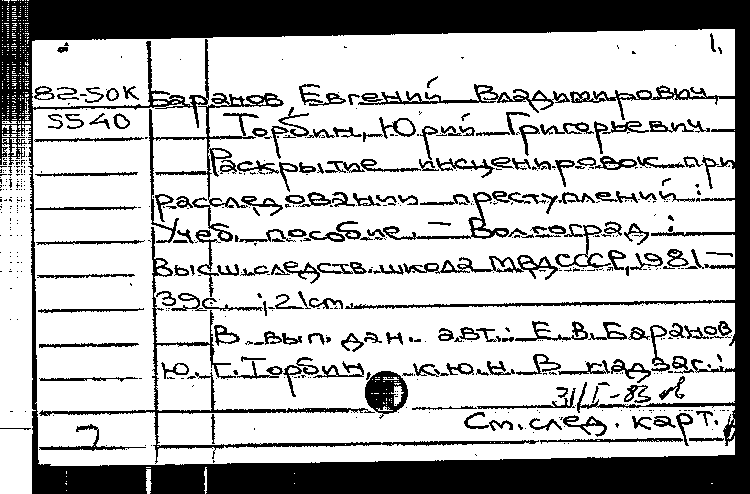 1.
82-50K Баранов, Евгений Владимирович,
5540 Торбин, Юрий Григорьевич.
Раскрытие инсценировок при
расследовании преступлений :
Учеб. пособие. — Волгоград :
Высш. следств. школа МВД СССР, 1981. —
39 с. ; 21 см.
В вып. дан. авт.: Е. В. Баранов,
Ю. Г. Торбин, к.ю.н. В надзаг.:
31/I-83
7 См. след. карт.